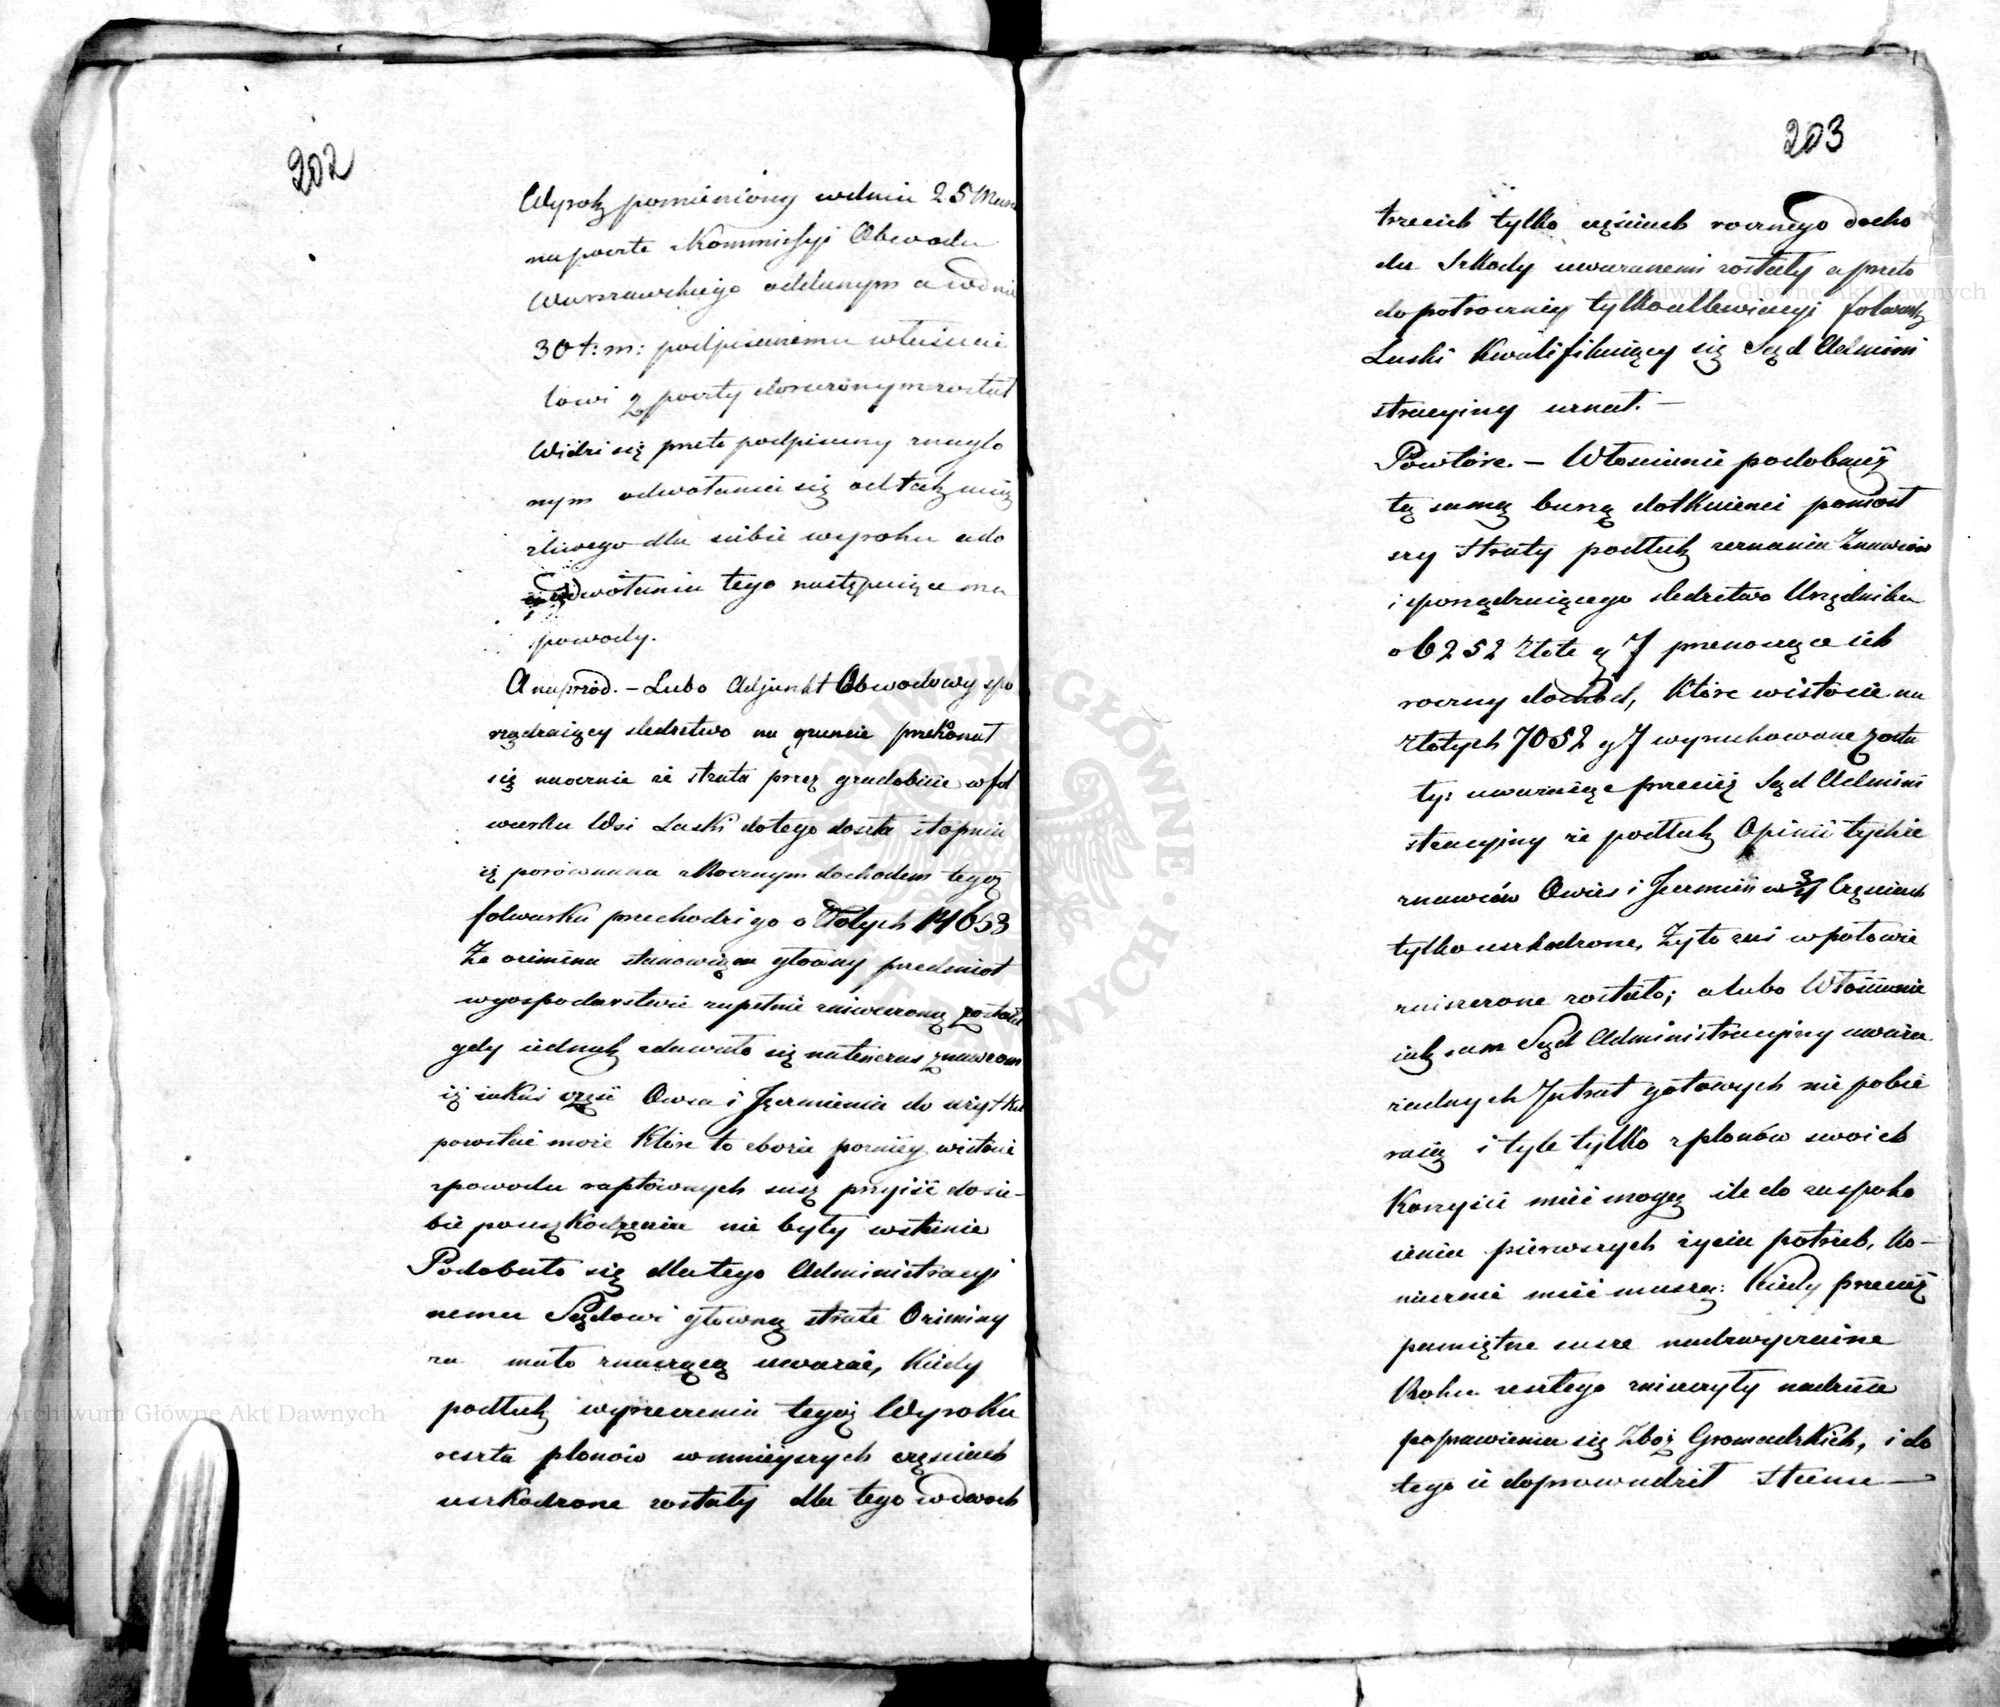 202
Wyrok pomieniony w dniu 25 Marca
na pocztę Kommissyi Obwodu
Warszawskiego oddanym a w dniu
30 t: m: podpisanemu właścicie
lowi z poczty doręczonym został
Widzi się przeto podpisany znaglo
nym odwołania się od tak uciąż
liwego dla siebie wyroku a do
odwołania tego następujące ma
powody.
A naprzód. – Lubo Adjunkt Obwodowy spo
rządzaiący śledztwo na gruncie przekonał
się naocznie że strata przez gradobicie w fol
warku Wsi Laski do tego doszła stopnia
iż porównana z Rocznym dochodem tegoż
folwarku przechodzi go o Złotych 14653
Że ozimina stanowiąca główny przedmiot
w gospodarstwie zupełnie zniweczoną została
gdy iednak zdawało się natenczas znawcom
iż iakaś część Owsa i Jęczmienia do użytku
powstać może które to zboża pozniey wistocie
z powodu raptownych susz przyiść do sie-
bie po uszkodzeniu nie były wstanie
Podobało się dla tego Administracyi
nemu Sądowi główną stratę Oziminy
za mało znaczącą uważać, kiedy
podług wyrzeczenia tegoż Wyroku
reszta plonów w mnieyszych częściach
uszkodzone zostały dla tego w dwoch
203
trzecich tylko częściach rocznego docho
du Szkody uważanemi zostały a przeto
do połroczney tylko allewiacyi folwark
Laski kwalifikuiący się Sąd Admini
stracyiny uznał. –
Powtóre. – Włościanie podobnież
tą samą burzą dotknieni poniosł
szy straty podług zeznania Znawców
i sporządzaiącego sledztwo Urzędnika
o 6252 Złote g 7 przenoszące ich
roczny dochód, które wistocie na
Złotych 7052 g 7 wyrachowane zosta
ły: uważaiąc przecięż Sąd Admini
stracyiny że podług Opinii tychże
znawców Owies i Jęczmień w 3/4 Częściach
tylko uszkodzone, Żyto zaś w połowie
zniszczone zostało; a lubo Włościanie
iak sam Sąd Administracyiny uważa
żadnych Intrat gotowych nie pobie
raią i tyle tylko z plonów swoich
korzyści mieć mogą ile do zaspoko
ienia pierwszych życia potrzeb, ko-
niecznie mieć muszą: kiedy przecięż
pamiętne susze nadzwyczaine
Roku zeszłego zniszczyły nadzieie
poprawienia się Zboż Gromadzkich, i do
tego ie doprowadził stanu –